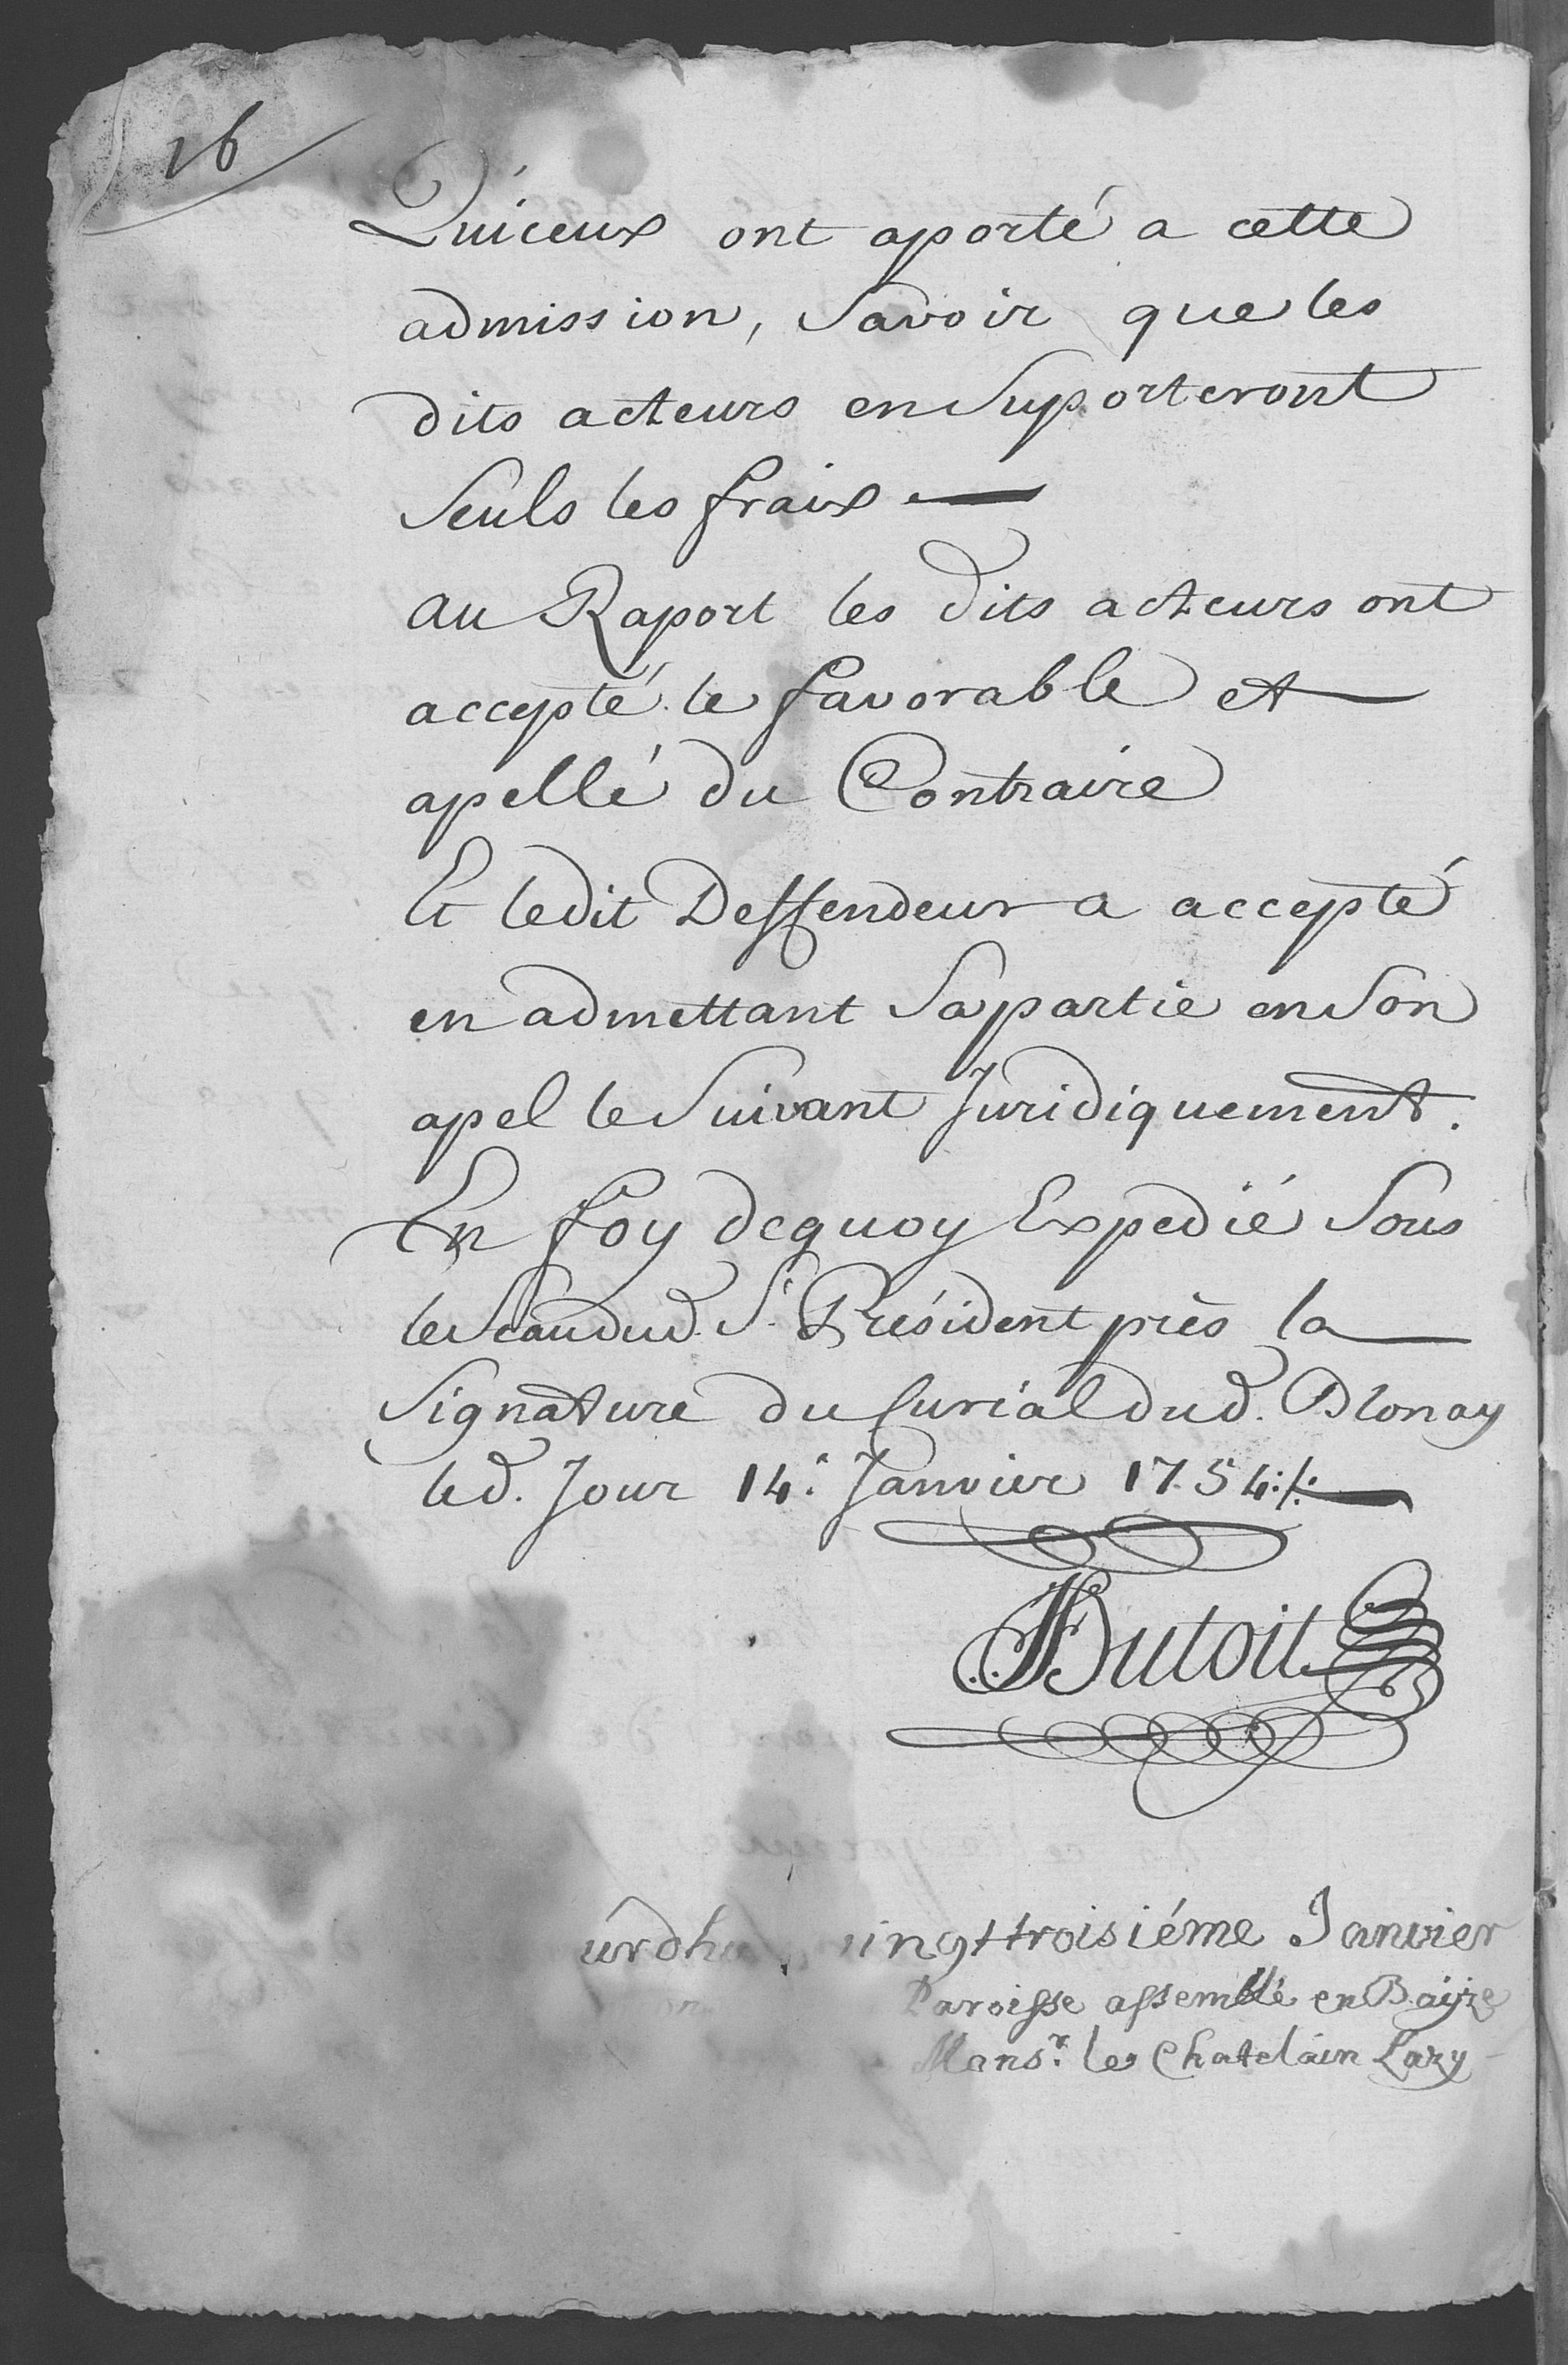 16
Quiceux ont aporté a cette
admission, Savoir que les
dits acteurs en Suporteront
Seuls les fraix —
au Raport les dits acteurs ont
accepté le favorable et —
apellé du Contraire
Et ledit Deffendeur a accepté
en admettant Sa partie en Son
apel le Suivant Juridiquement.
En foy dequoy Expedié Sous
le Sceau dud. Sr. Président près la —
Signature du Curial dud. Blonay
led. Jour 14e. Janvier 1754 ./. —
Dutoit
urdhu vingttroisiéme Janvier
Paroisse assemblé en
Monsr. le Chatelain